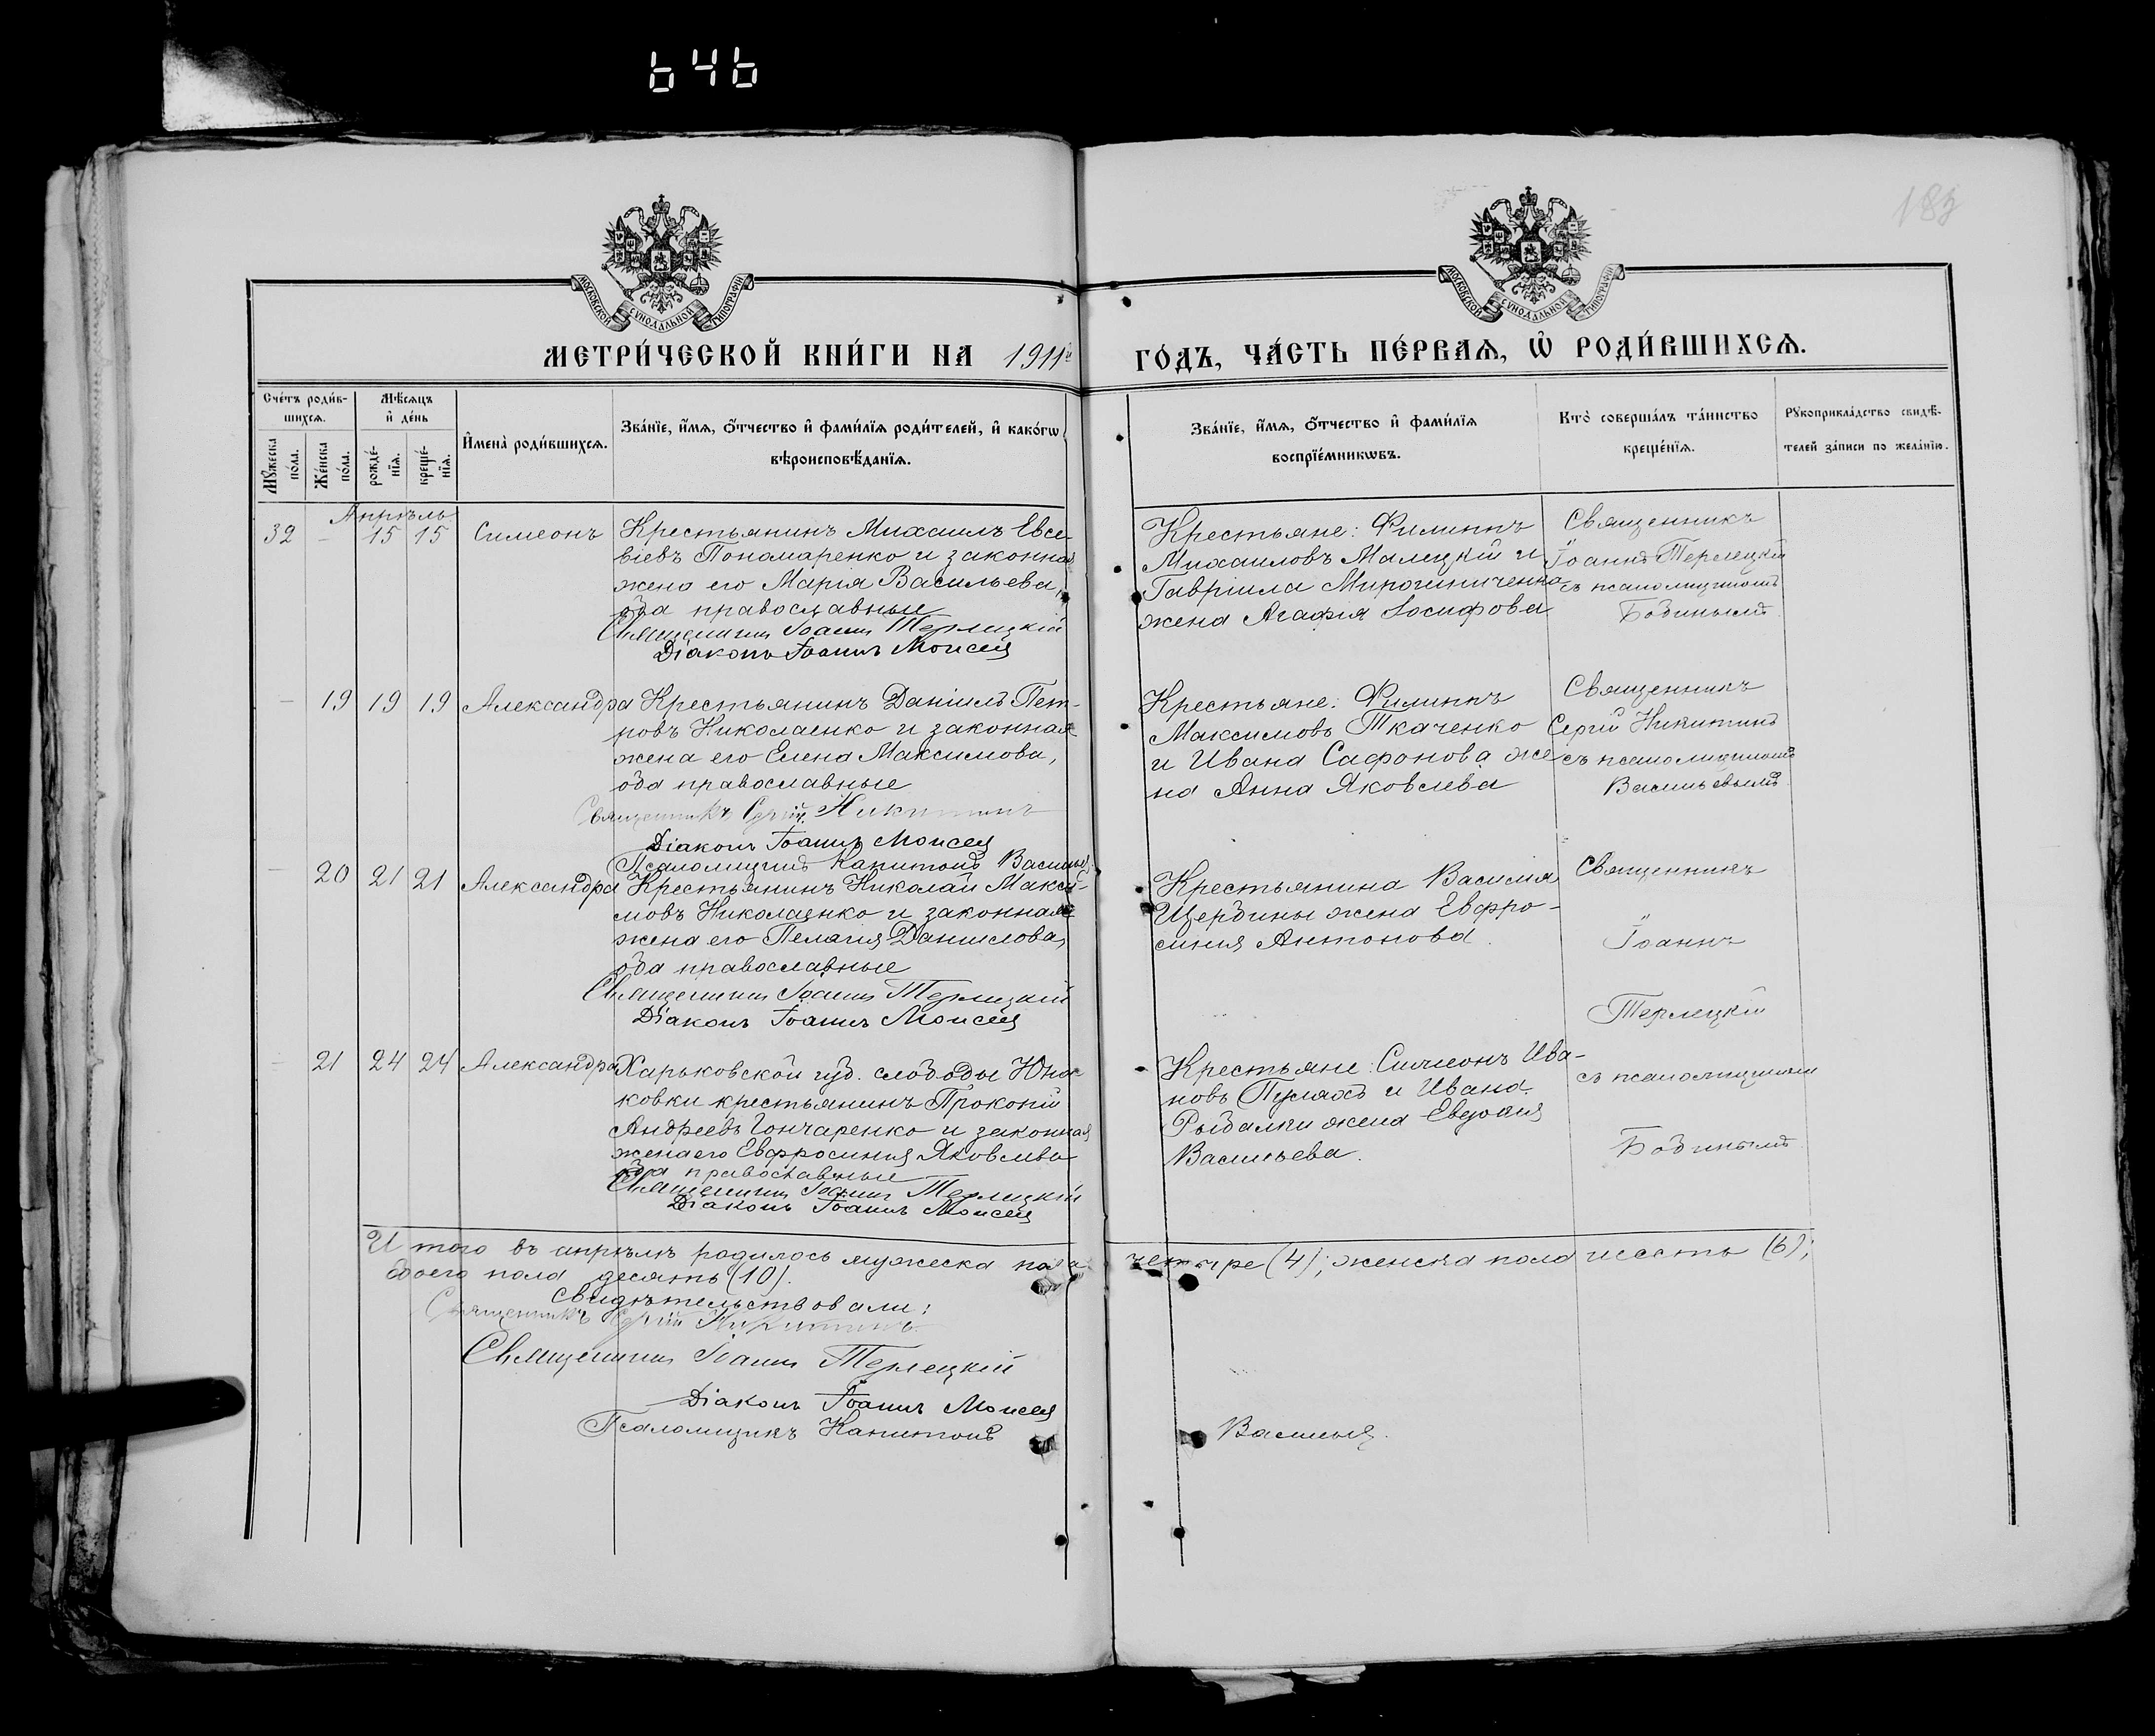 646
183
МОСКОВСКОЙ СУНОДАЛЬНОЙ ТИПОГРАФІИ
МОСКОВСКОЙ СУНОДАЛЬНОЙ ТИПОГРАФІИ
МЕТРИ́ЧЕСКОЙ КНИ́ГИ НА 1911й ГО́ДЪ, ЧА́СТЬ ПЕ́РВАѦ, Ѡ҆ РОДИ́ВШИХСѦ.
Сче́тъ роди́в-
шихсѧ.
Мꙋ́жеска по́ла.
Же́нска по́ла.
Мѣ́сѧцъ
и҆ де́нь
рожде́-
нїѧ.
креще́-
нїѧ.
И҆мена̀ роди́вшихсѧ.
Зва́нїе, и҆́мѧ, ѻ҆́тчество и҆ фами́лїѧ роди́телей, и҆ како́гѡ
вѣроисповѣ́данїѧ.
Зва́нїе, и҆́мѧ, ѻ҆́тчество и҆ фами́лїѧ
воспрїе́мникѡвъ.
Кто̀ соверша́лъ та́инство
креще́нїѧ.
Рꙋкоприкла́дство свидѣ́-
телей за́писи по жела́нїю.
Апрѣль
32 – 15 15 Симеонъ
Крестьянинъ Михаилъ Евсе-
віевъ Пономаренко и законная
жена его Марія Васильева,
оба православные
Священникъ Іоаннъ Терлецкій
Діаконъ Іоаннъ Моисеев
Крестьяне: Филиппъ
Михаиловъ Малецкій и
Гавріила Мирошниченко
жена Агафія Іосифова
Священникъ
Іоаннъ Терлецкій
съ псаломщикомъ
Бодинымъ
– 19 19 19 Александра
Крестьянинъ Даніилъ Пет-
ровъ Николаенко и законная
жена его Елена Максимова,
оба православные
Священникъ Сергій Никитинъ
Діаконъ Іоаннъ Моисеев
Псаломщикъ Капитонъ Васильев
Крестьяне: Филиппъ
Максимовъ Ткаченко
и Ивана Сафонова же-
на Анна Яковлева
Священникъ
Сергій Никитинъ
съ псаломщикомъ
Васильевымъ
– 20 21 21 Александра
Крестьянинъ Николай Макси-
мовъ Николаенко и законная
жена его Пелагія Данилова,
оба православные
Священникъ Іоаннъ Терлецкій
Діаконъ Іоаннъ Моисеев
Крестьянина Василія
Щербины жена Евфро-
синія Антонова.
Священникъ
Іоаннъ
Терлецкій
– 21 24 24 Александра
Харьковской губ. слободы Юна-
ковки крестьянинъ Прокопій
Андреевъ Гончаренко и законная
жена его Евфросинія Яковлева
оба православные
Священникъ Іоаннъ Терлецкій
Діаконъ Іоаннъ Моисеев
Крестьяне: Симеонъ Ива-
новъ и Ивана
Рыбалки жена Евдокія
Васильева.
съ псаломщикомъ
Бодинымъ
Итого въ апрѣлѣ родилось мужеска пола четыре (4); женска пола шесть (6);
обоего пола десять (10).
Свидѣтельствовали:
Священникъ Сергій Никитинъ
Священникъ Іоаннъ Терлецкій
Діаконъ Іоаннъ Моисеев
Псаломщикъ Капитонъ Васильев.